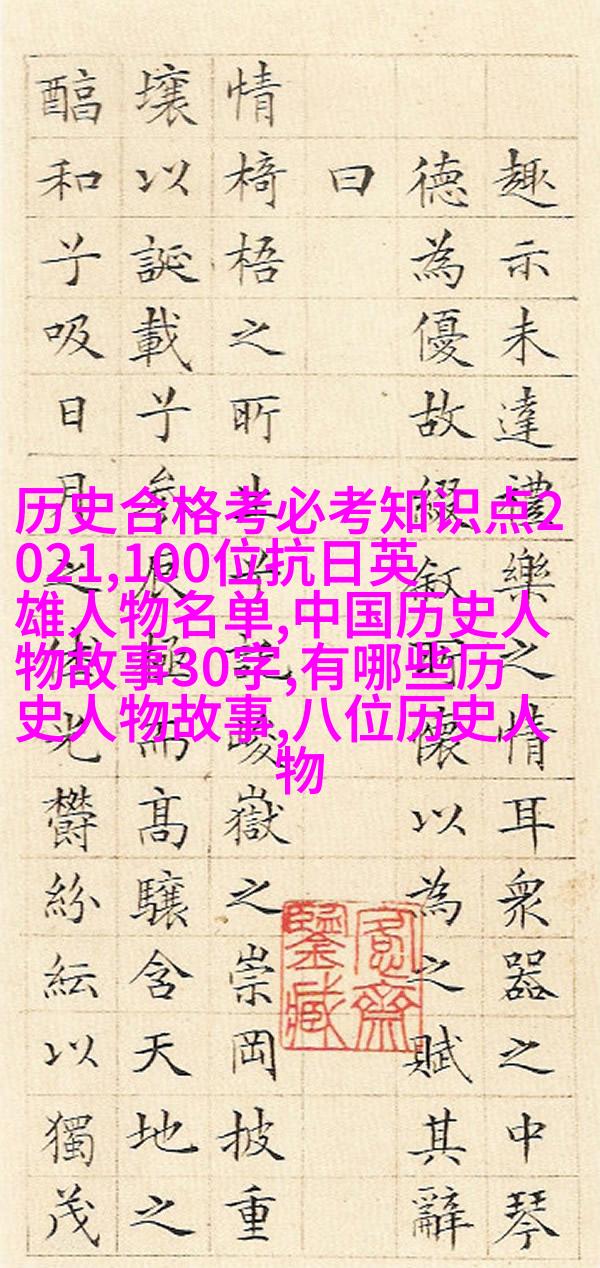 趣示未達禮樂之情耳衆器之中琴
德為優故綴叙所懷以為之賦其辭
曰
情椅梧之所生兮託峻嶽之崇岡披重
壤以誕載兮參辰極而高驤含天地之
醕和兮吸日月之休光鬱紛紜以獨茂
愙齋
鑒藏
历史合格考必考知识点2
021,100位抗日英
雄人物名单,中国历史人
物故事30字,有哪些历
史人物故事,八位历史人
物